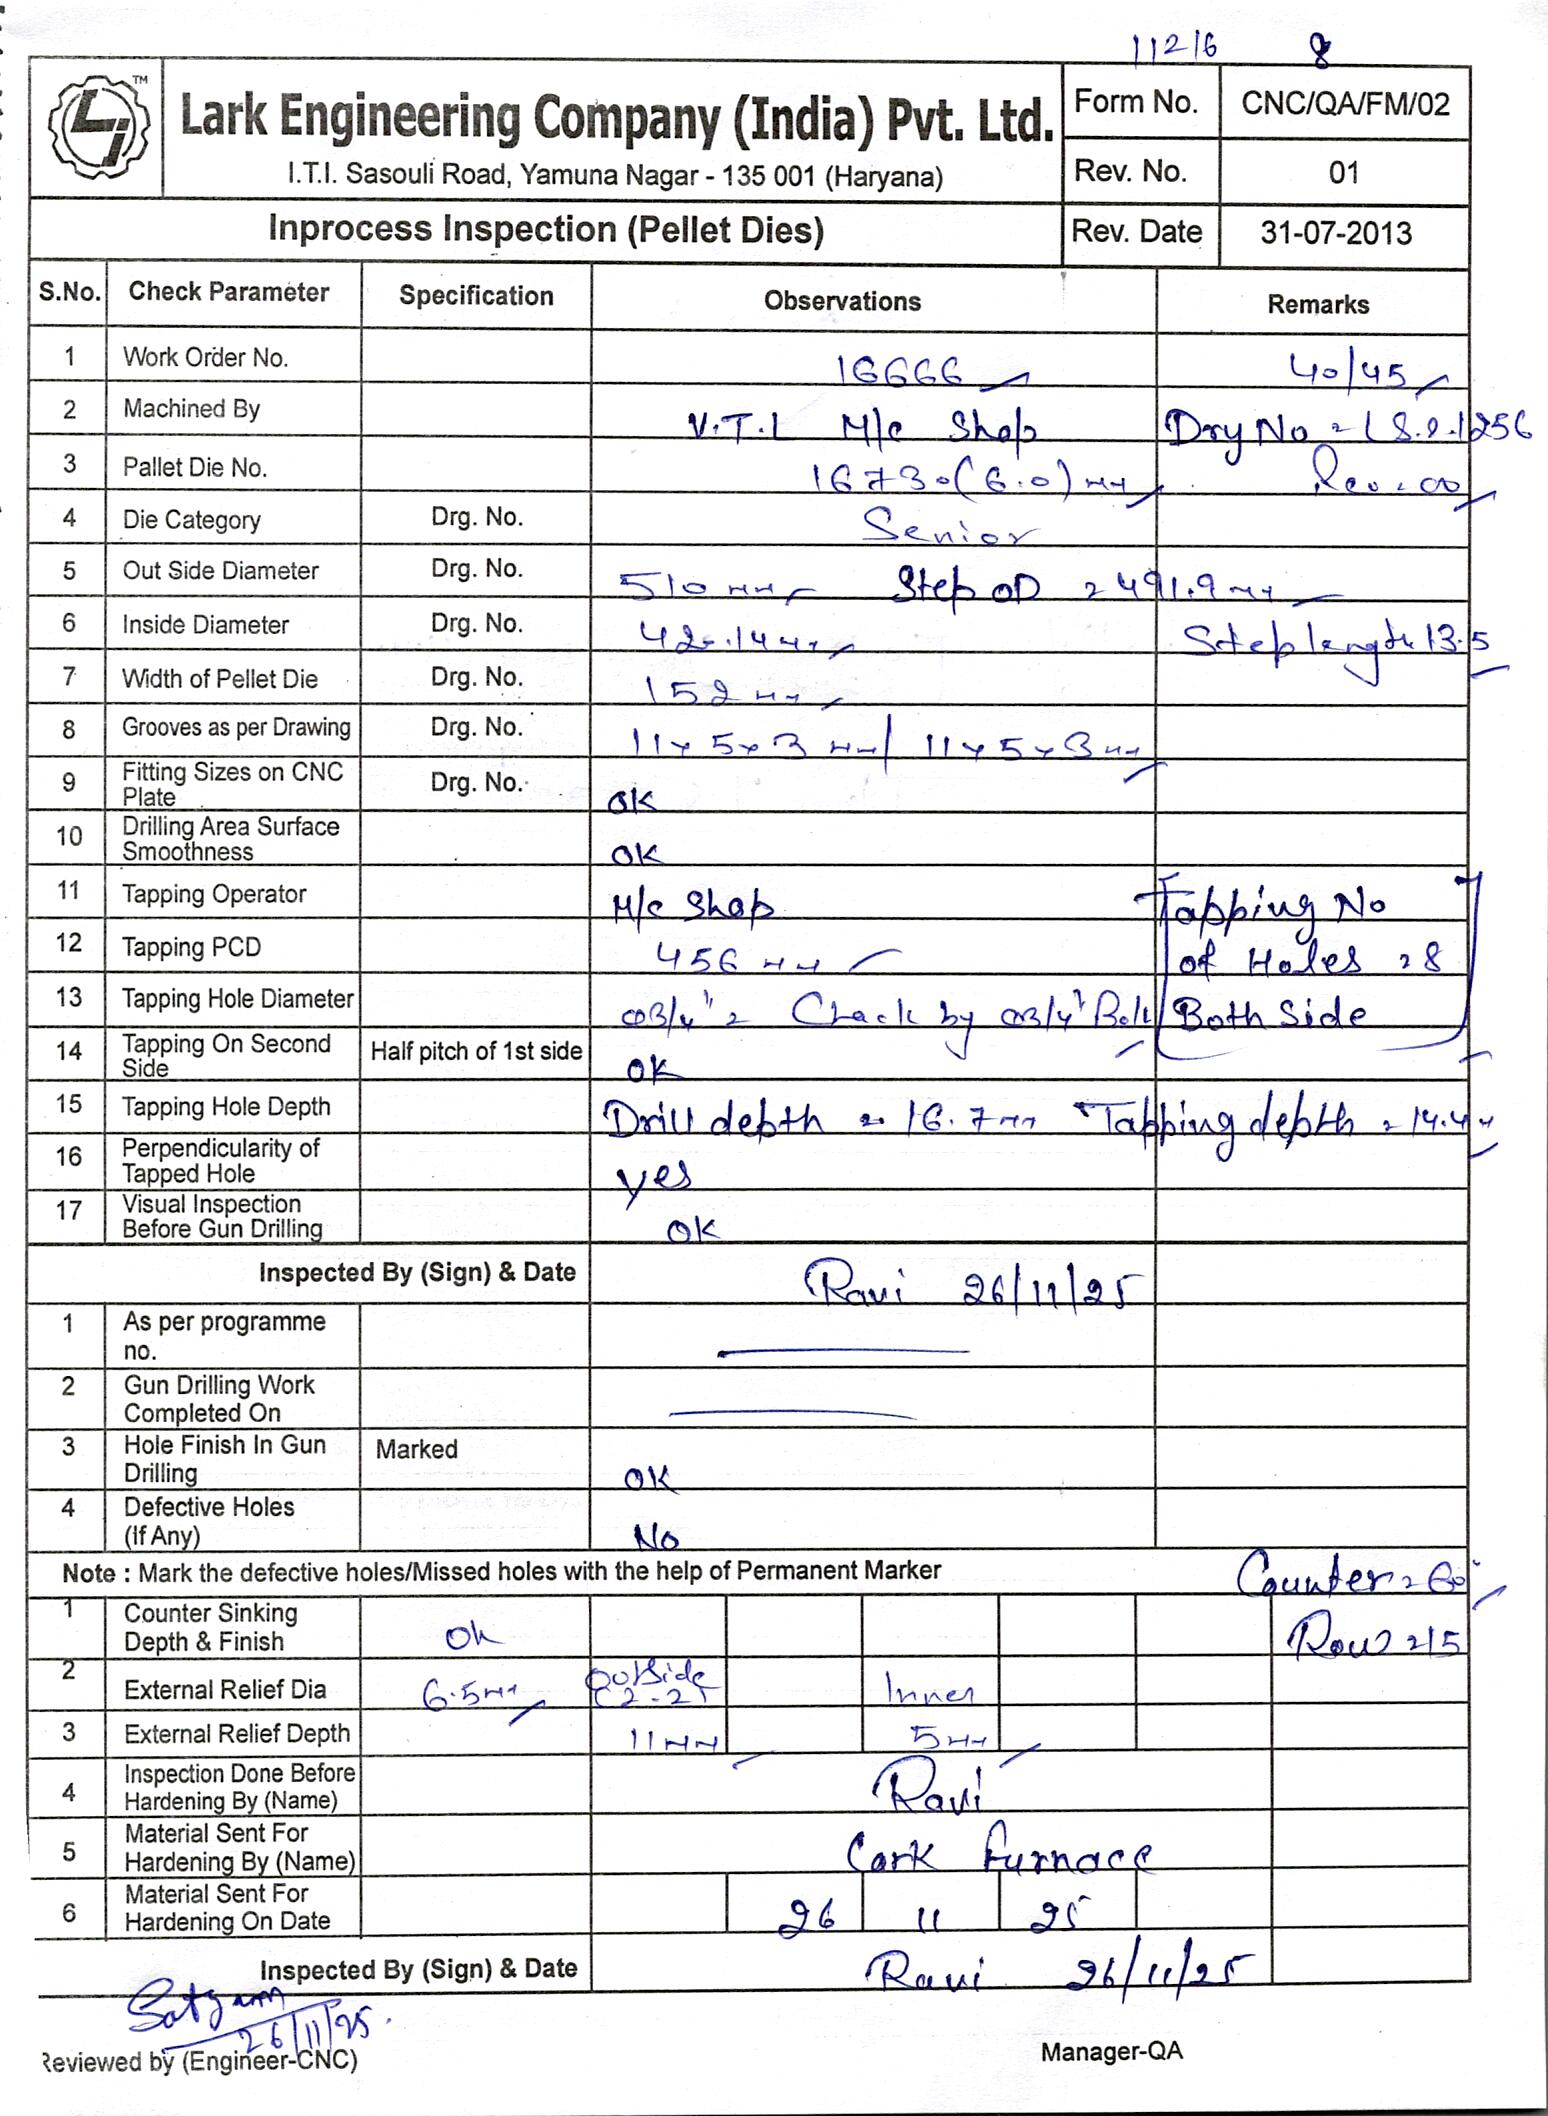 11216 8
TM
Lark Engineering Company (India) Pvt. Ltd.
I.T.I. Sasouli Road, Yamuna Nagar - 135 001 (Haryana)
Form No. CNC/QA/FM/02
Rev. No. 01
Inprocess Inspection (Pellet Dies)
Rev. Date 31-07-2013
S.No. Check Parameter Specification Observations Remarks
1 Work Order No. 16666 40/45
2 Machined By V.T.L M/c Shop
3 Pallet Die No. 16730(6.0) mm Rev.=00
4 Die Category Drg. No. Senior
5 Out Side Diameter Drg. No. 510 mm Step OD = 491.9 mm
6 Inside Diameter Drg. No. Step length 13.5
7 Width of Pellet Die Drg. No. 152 mm
8 Grooves as per Drawing Drg. No. 11x5x3 mm/ 11x5x3 mm
9 Fitting Sizes on CNC Plate Drg. No. OK
10 Drilling Area Surface Smoothness OK
11 Tapping Operator M/c Shop Tapping No
12 Tapping PCD 456 mm of Holes = 8
13 Tapping Hole Diameter 3/4" = Chack by 3/4" Bolt Both Side
14 Tapping On Second Side Half pitch of 1st side OK
15 Tapping Hole Depth Drill depth = 16.7mm Tapping depth = 14.4
16 Perpendicularity of Tapped Hole yes
17 Visual Inspection Before Gun Drilling OK
Inspected By (Sign) & Date Ravi 26/11/25
1 As per programme no.
2 Gun Drilling Work Completed On
3 Hole Finish In Gun Drilling Marked OK
4 Defective Holes (If Any) No
Note : Mark the defective holes/Missed holes with the help of Permanent Marker Counter = 60°
1 Counter Sinking Depth & Finish Ok Row = 15
2 External Relief Dia 6.5mm Outside Inner
3 External Relief Depth 11mm 5mm
4 Inspection Done Before Hardening By (Name) Ravi
5 Material Sent For Hardening By (Name) Furnace
6 Material Sent For Hardening On Date 26 11 25
Inspected By (Sign) & Date Ravi 26/11/25
Satyam
26/11/25.
Reviewed by (Engineer-CNC) Manager-QA